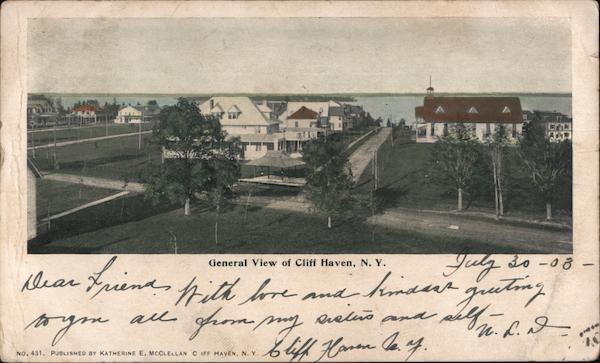 General View of Cliff Haven, N. Y.
July 30 - 03 -
Dear Friends With love and kindest greeting
to you all from my sisters and self - N. L. D
Cliff Haven N. Y.
NO. 431. PUBLISHED BY KATHERINE E. MCCLELLAN C IFF HAVEN, N. Y.